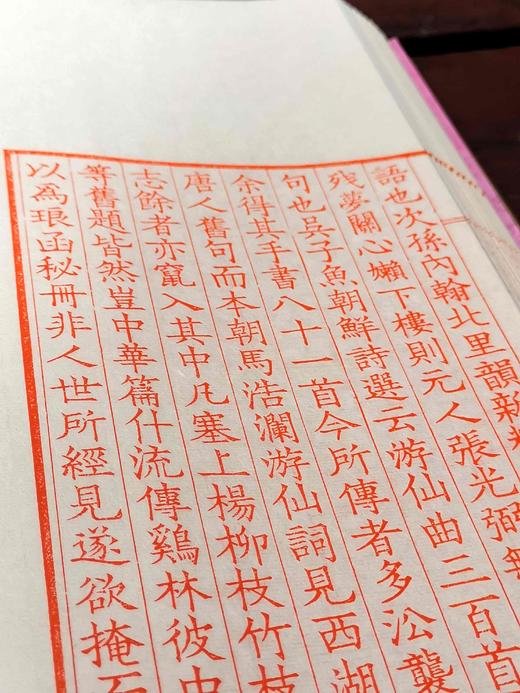 語也次孫內翰北里韻新
殘夢關心嬾下樓則元人張光弼無
句也吳子魚朝鮮詩選云游仙曲三百首
余得其手書八十一首今所傳者多沿襲
唐人舊句而本朝馬浩瀾游仙詞見西湖
志餘者亦竄入其中凡塞上楊柳枝竹枝
等舊題皆然豈中華篇什流傳鷄林彼中
以爲琅函秘冊非人世所經見遂欲掩